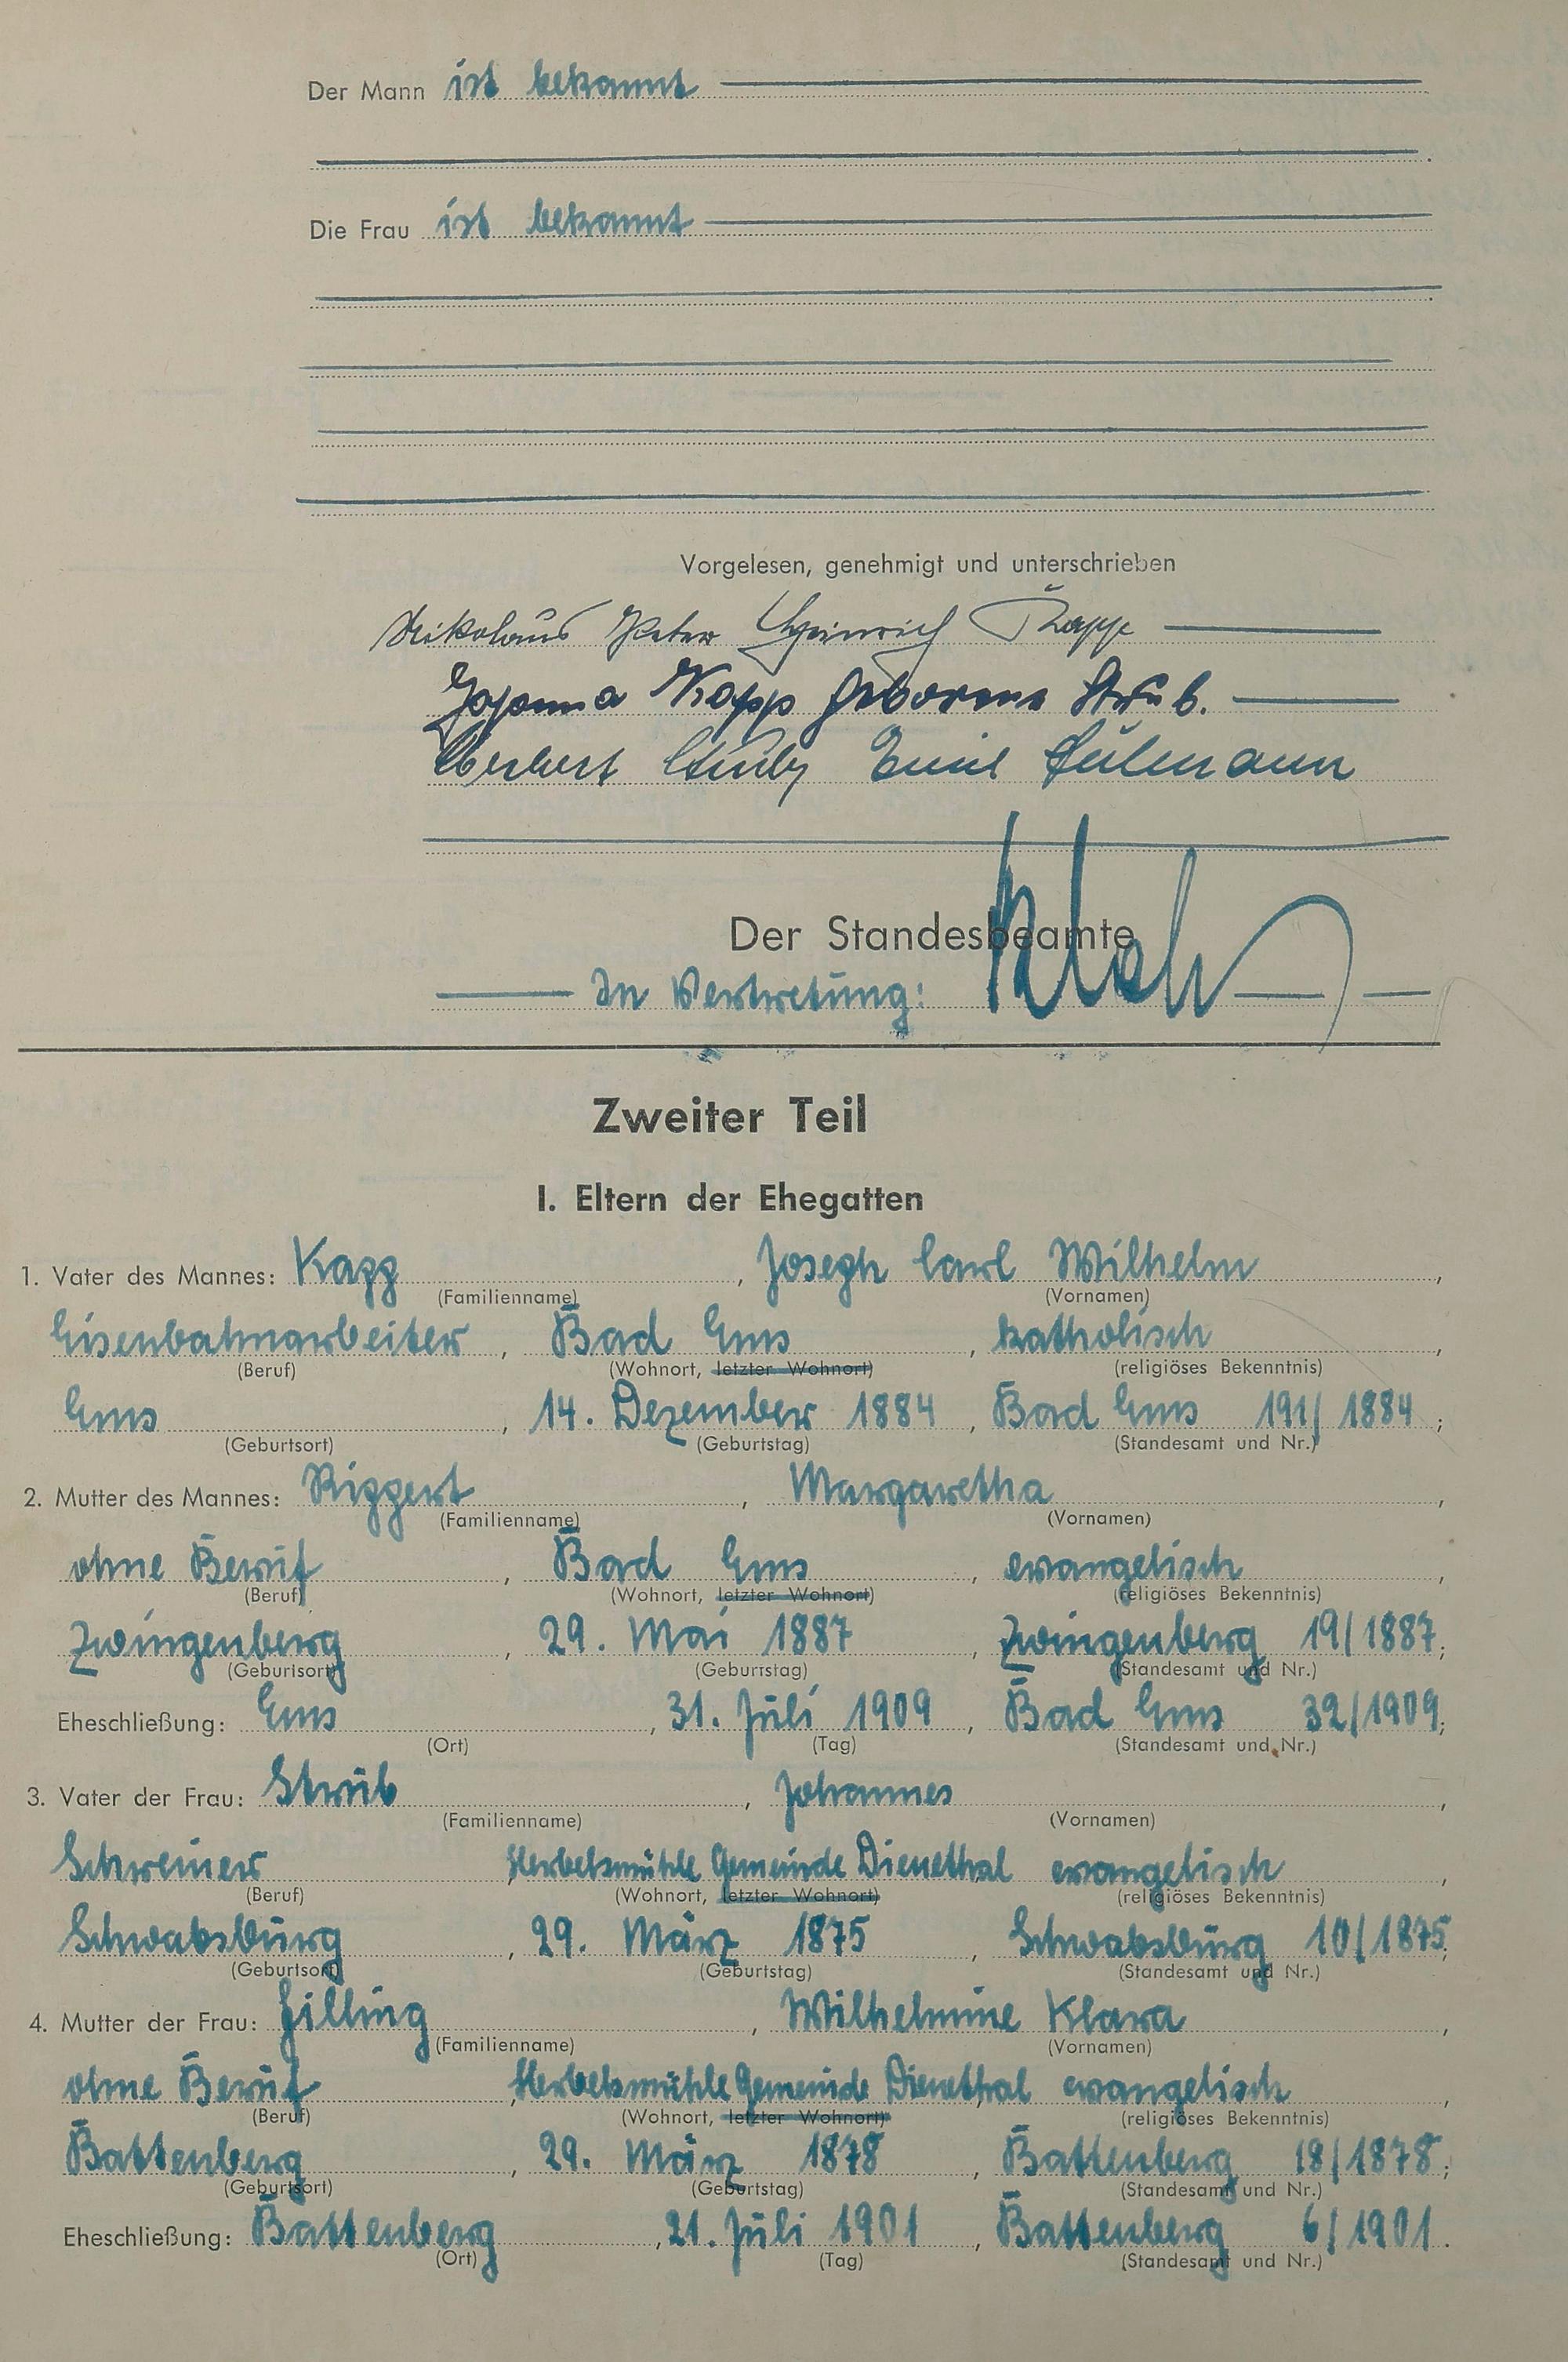 Der Mann ist bekannt
Die Frau ist bekannt
Vorgelesen, genehmigt und unterschrieben
Nikolaus Peter Heinrich Kapp
Johanna Kapp geborene Strub.
Herbert Emil
Der Standesbeamte
In Vertretung:
Zweiter Teil
I. Eltern der Ehegatten
1. Vater des Mannes: Kapp, Joseph Carl Wilhelm,
(Familienname) (Vornamen)
Eisenbahnarbeiter, Bad Ems, katholisch,
(Beruf) (Wohnort, letzter Wohnort) (religiöses Bekenntnis)
Ems, 14. Dezember 1884, Bad Ems 191/1884;
(Geburtsort) (Geburtstag) (Standesamt und Nr.)
2. Mutter des Mannes: Rippert, Margaretha,
(Familienname) (Vornamen)
ohne Beruf, Bad Ems, evangelisch,
(Beruf) (Wohnort, letzter Wohnort) (religiöses Bekenntnis)
Zwingenberg, 29. Mai 1887, Zwingenberg 19/1887;
(Geburtsort) (Geburtstag) (Standesamt und Nr.)
Eheschließung: Ems, 31. Juli 1909, Bad Ems 32/1909;
(Ort) (Tag) (Standesamt und Nr.)
3. Vater der Frau: Strub, Johannes,
(Familienname) (Vornamen)
Schreiner, Herbelsmühle Gemeinde Dienethal evangelisch,
(Beruf) (Wohnort, letzter Wohnort) (religiöses Bekenntnis)
Schwabsburg, 29. März 1875, Schwabsburg 10/1875;
(Geburtsort) (Geburtstag) (Standesamt und Nr.)
4. Mutter der Frau: Zilling, Wilhelmine Klara,
(Familienname) (Vornamen)
ohne Beruf, Herbelsmühle Gemeinde Dienethal evangelisch,
(Beruf) (Wohnort, letzter Wohnort) (religiöses Bekenntnis)
Battenberg, 29. März 1878, Battenberg 18/1878;
(Geburtsort) (Geburtstag) (Standesamt und Nr.)
Eheschließung: Battenberg, 21. Juli 1901, Battenberg 6/1901.
(Ort) (Tag) (Standesamt und Nr.)